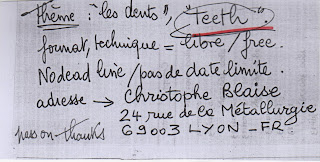 thème : "les dents", "Teeth".
format, technique = libre / free.
No dead line / pas de date limite.
adresse → Christophe Blaise
24 rue de la Métallurgie
pass on - thanks 69003 LYON - FR